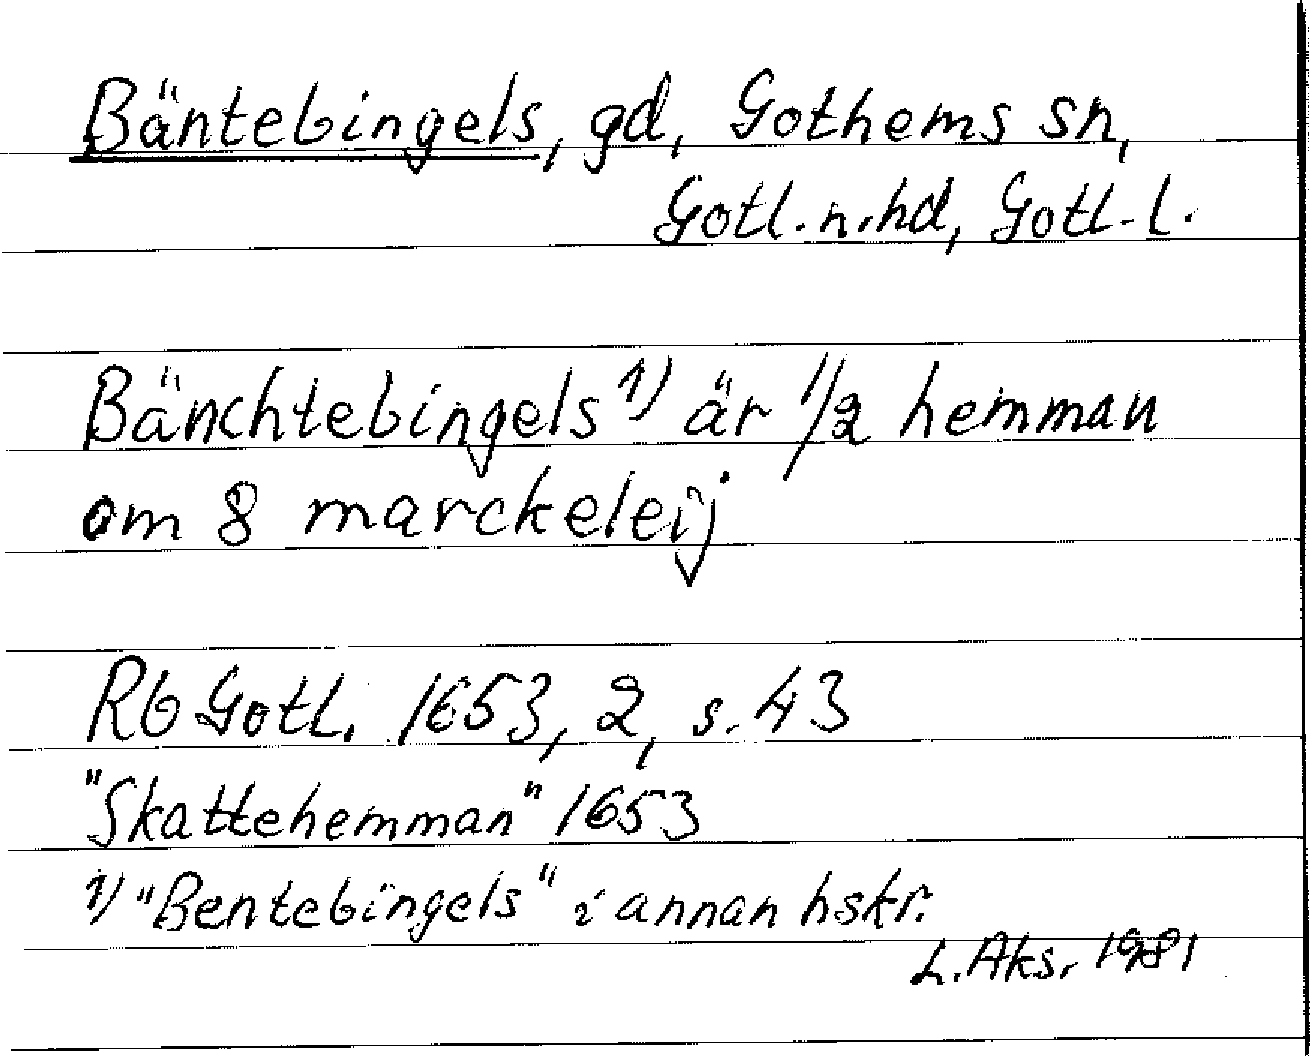 Bäntebingels, gd, Gothems sn,
Gotl. n. hd, Gotl. l.
Bänchtebingels 1) är 1/2 hemman
om 8 marckeleij
Rb Gotl. 1653, 2, s. 43
"Skattehemman" 1653
1) "Bentebingels" i annan hskr.
L. Aks. 1981